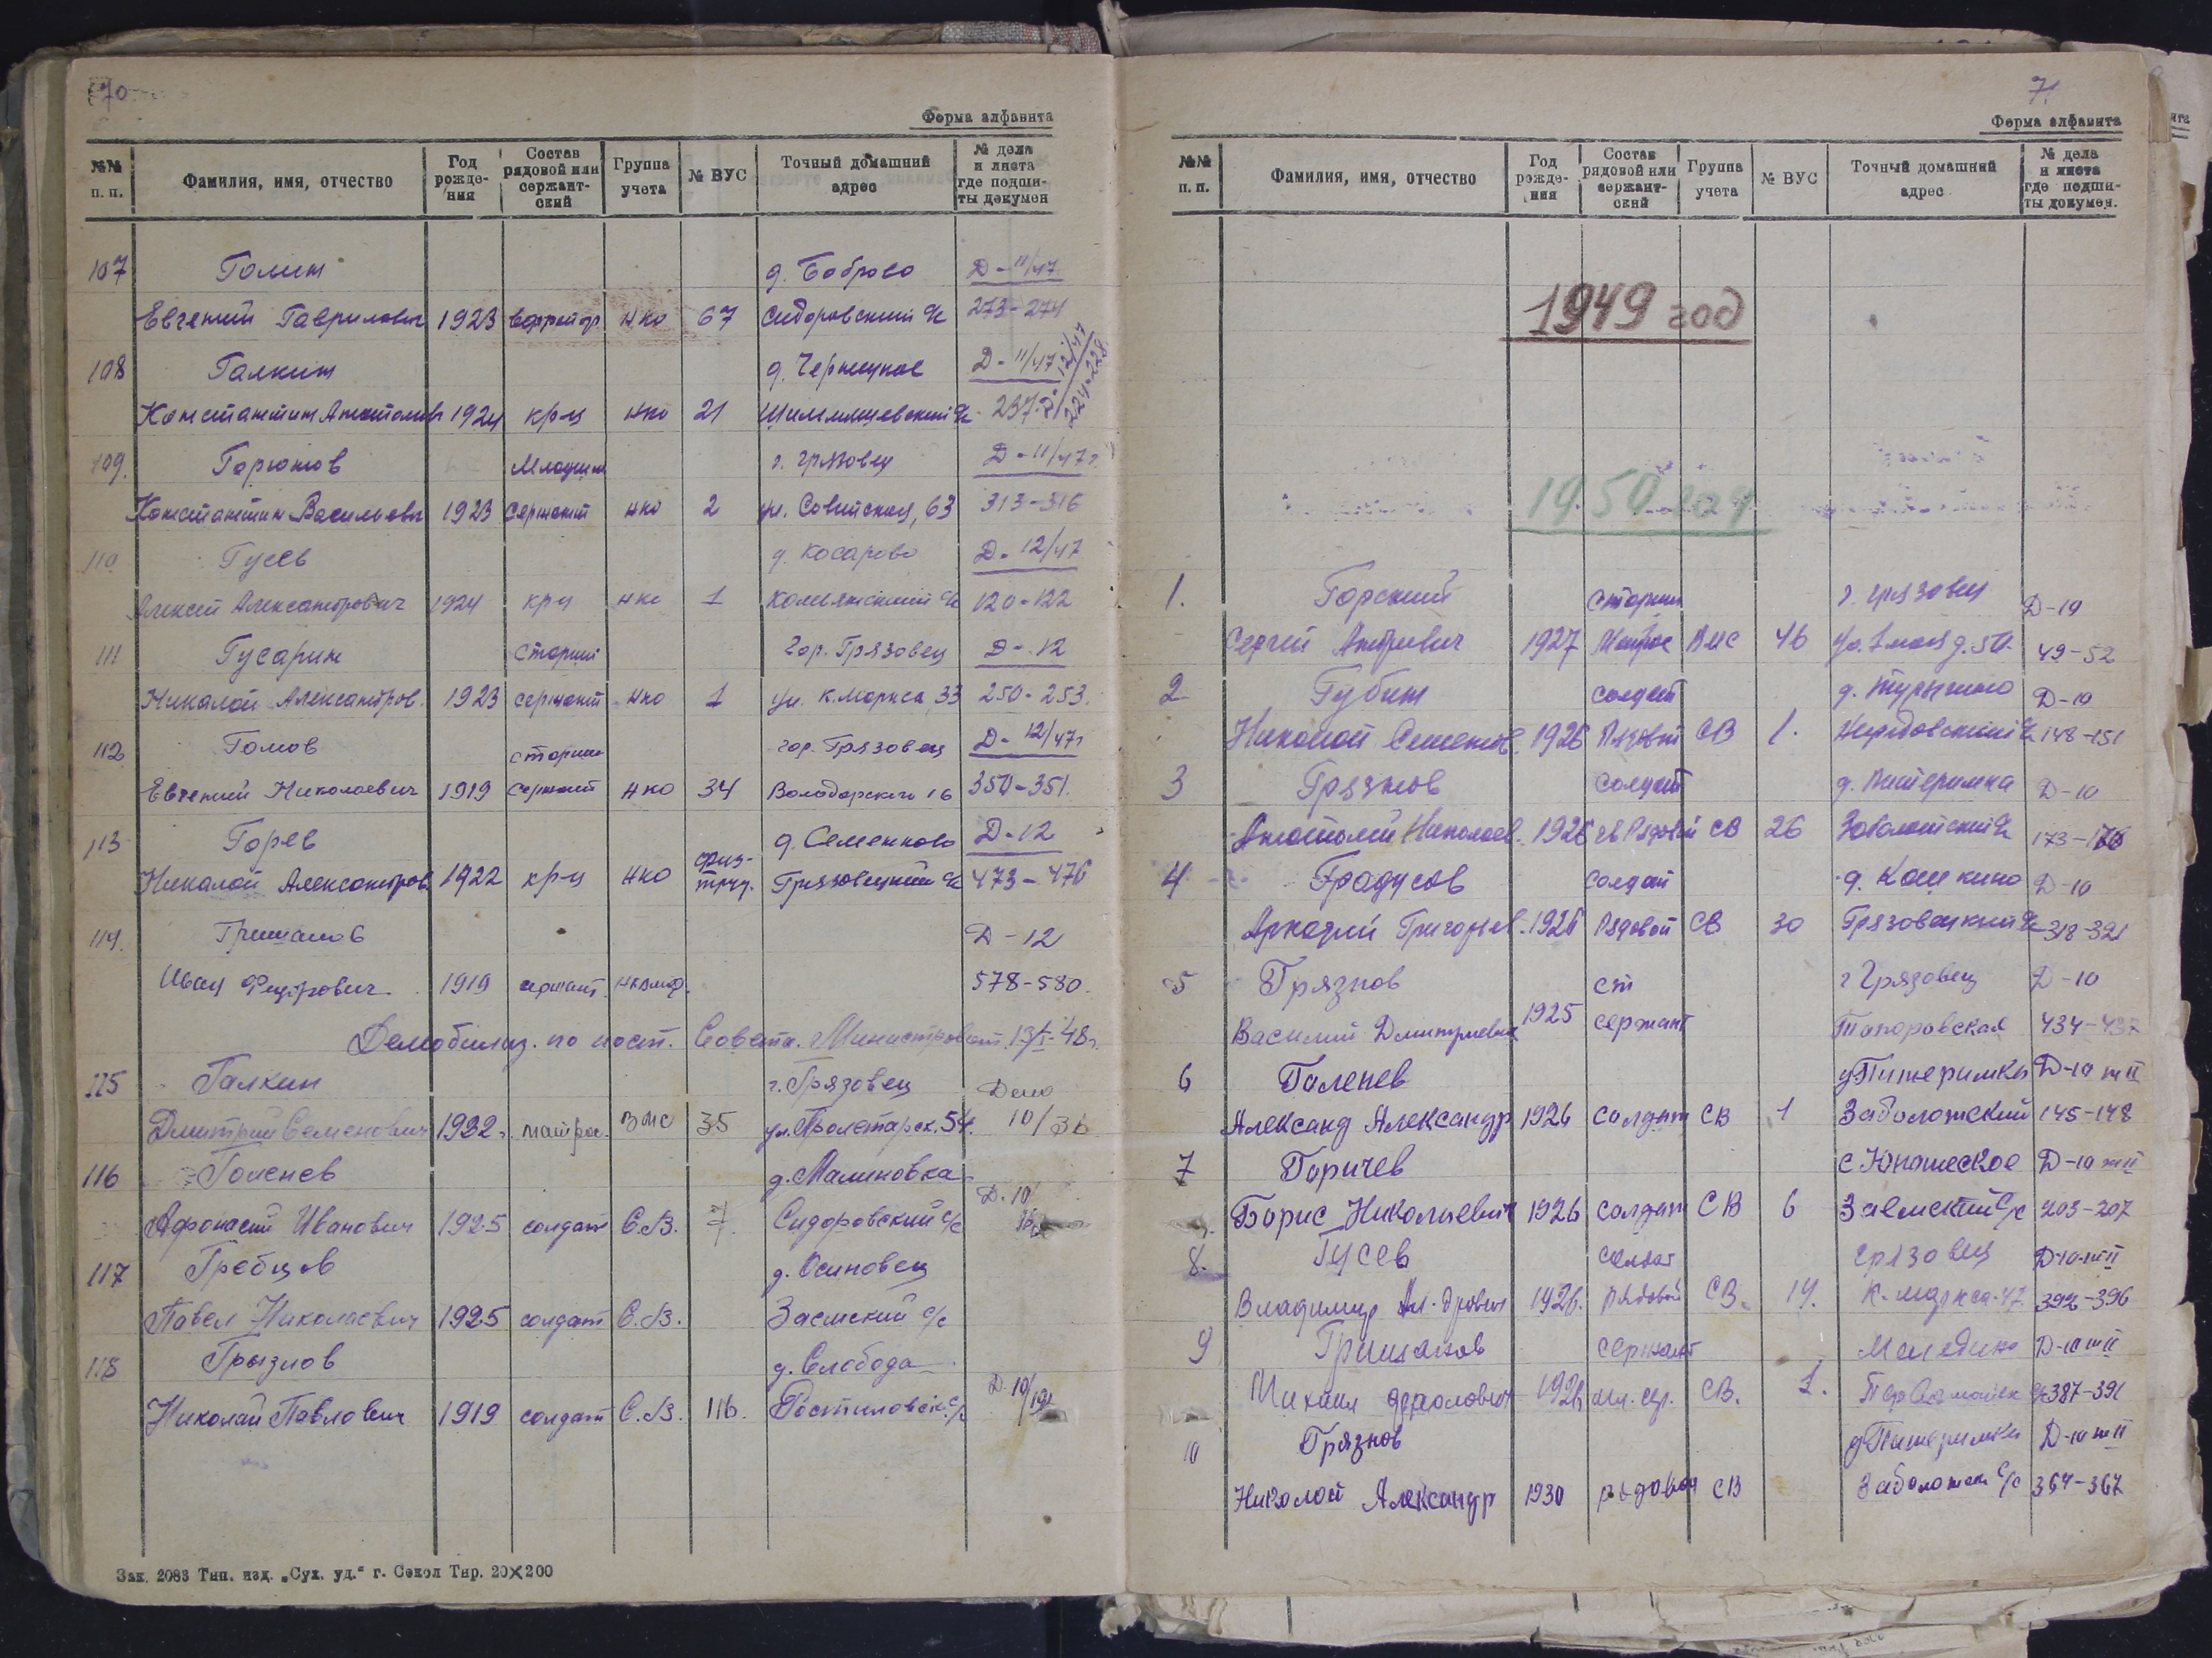 70
Форма алфавита
№№ п. п. Фамилия, имя, отчество Год рожде- ния Состав рядовой или сержант- ский Группа учета № ВУС Точный домашний адрес № дела и листа где подши- ты докумен
107 Голин д. Боброво Д-11/47
Евгений Гаврилович 1923 НКО 67 Сидоровский с/с 273-274
108 Галкин Д-11/47 Д-12/47
Константин Анатольев 1924 кр-ц НКО 21 224-228
109. Горюнов Младший г. Грязовец Д-11/47г
Константин Васильевич 1923 сержант НКО 2 ул. Советская, 63 313-316
110 Гусев д. Косарово Д-12/47
Алексей Александрович 1924 кр-ц НКО 1 с/с 120-122
111 Гусарин старший гор. Грязовец Д-12
Николай Александров. 1923 сержант НКО 1 ул. К.Маркса, 33 250-253.
112 Гомов старший гор. Грязовец Д-12/47г
Евгений Николаевич 1919 сержант НКО 34 Володарского 16 350-351.
113 Горев д. Семенково Д-12
Николай Александров. 1922 кр-ц НКО физ-труд. Грязовецкий с/с 473-476
114. Гришанов Д-12
Иван 1919 сержант. 578-580.
Демобилиз. по пост. Совета Министров от 13/I-48г.
115 Галкин г. Грязовец Дело
Дмитрий Семенович 1922 матрос ВМС 35 ул. Пролетарск. 54. 10/36
116 Голенев д. Малиновка Д. 10/
Афонасий Иванович 1925 солдат С.В. 7 Сидоровский с/с
117 Гребцов д. Осиновец
Павел Николаевич 1925 солдат С.В. Заемский с/с
118 Грызлов д. Слобода Д. 10/
Николай Павлович 1919 солдат С.В. 116. Ростиловск. с/с
Зак. 2083 Тип. изд. „Сух. уд.“ г. Сокол Тир. 20×200
71
Форма алфавита
№№ п. п. Фамилия, имя, отчество Год рожде- ния Состав рядовой или сержант- ский Группа учета № ВУС Точный домашний адрес № дела и листа где подши- ты докумен.
1949 год
1950 год
1. Горский старший г. Грязовец Д-10
Сергей Андреевич 1927 матрос ВМС 46 49-52
2 Губин солдат Д-10
Николай Семенов. 1926 Рядовой СВ 1. с/с 148-151
3 Грязнов солдат д. Питеримка Д-10
Анатолий Николаев. 1926 СВ 26 173-176
4 Градусов солдат д. Кошкино Д-10
Аркадий Григорьев. 1926 Рядовой СВ 30 Грязовецкий с/с 318-321
5 Грязнов ст г Грязовец Д-10
Василий Дмитриевич 1925 сержант Топоровская 434-437
6 Галенев д Питеримка Д-10 т II
Александ Александр 1926 солдат СВ 1 Заболотский 145-148
7 Горичев с Юношеское Д-10 т II
Борис Николаевич 1926 солдат СВ 6 Заемский с/с 203-207
8. Гусев солдат Грязовец Д-10-т II
Владимир Ал-дрович 1926. рядовой СВ. 19. К-Маркса-47. 392-396
9 Гришанов сержант Д-10 т II
Михаил 1926 мл. сер. СВ. 1. 387-391
10 Грязнов д Питеримки Д-10 т II
Николай Александр 1930 рядовой СВ Заболотск с/с 364-367